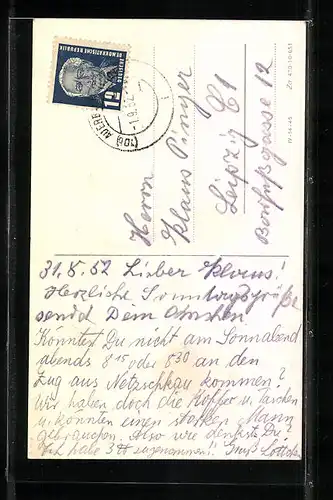 DEUTSCHE
DEMOKRATISCHE REPUBLIK
12
(10b) AUERB
-1.9.52.
Herrn
Klaus Pinger
Leipzig C1
Barfußgasse 12
IV-14-45
31.8.52 Lieber Klaus!
Herzliche Sonntagsgrüße
sendet Dein
Könntest Du nicht am Sonnabend
abends 8 15 oder 8 30 an den
Zug aus Netzschkau kommen?
Wir haben doch die Koffer u. Taschen
u. könnten einen starken Mann
gebrauchen. Also wie denkst Du?
Ich habe 3 ℔ zugenommen!! Gruß